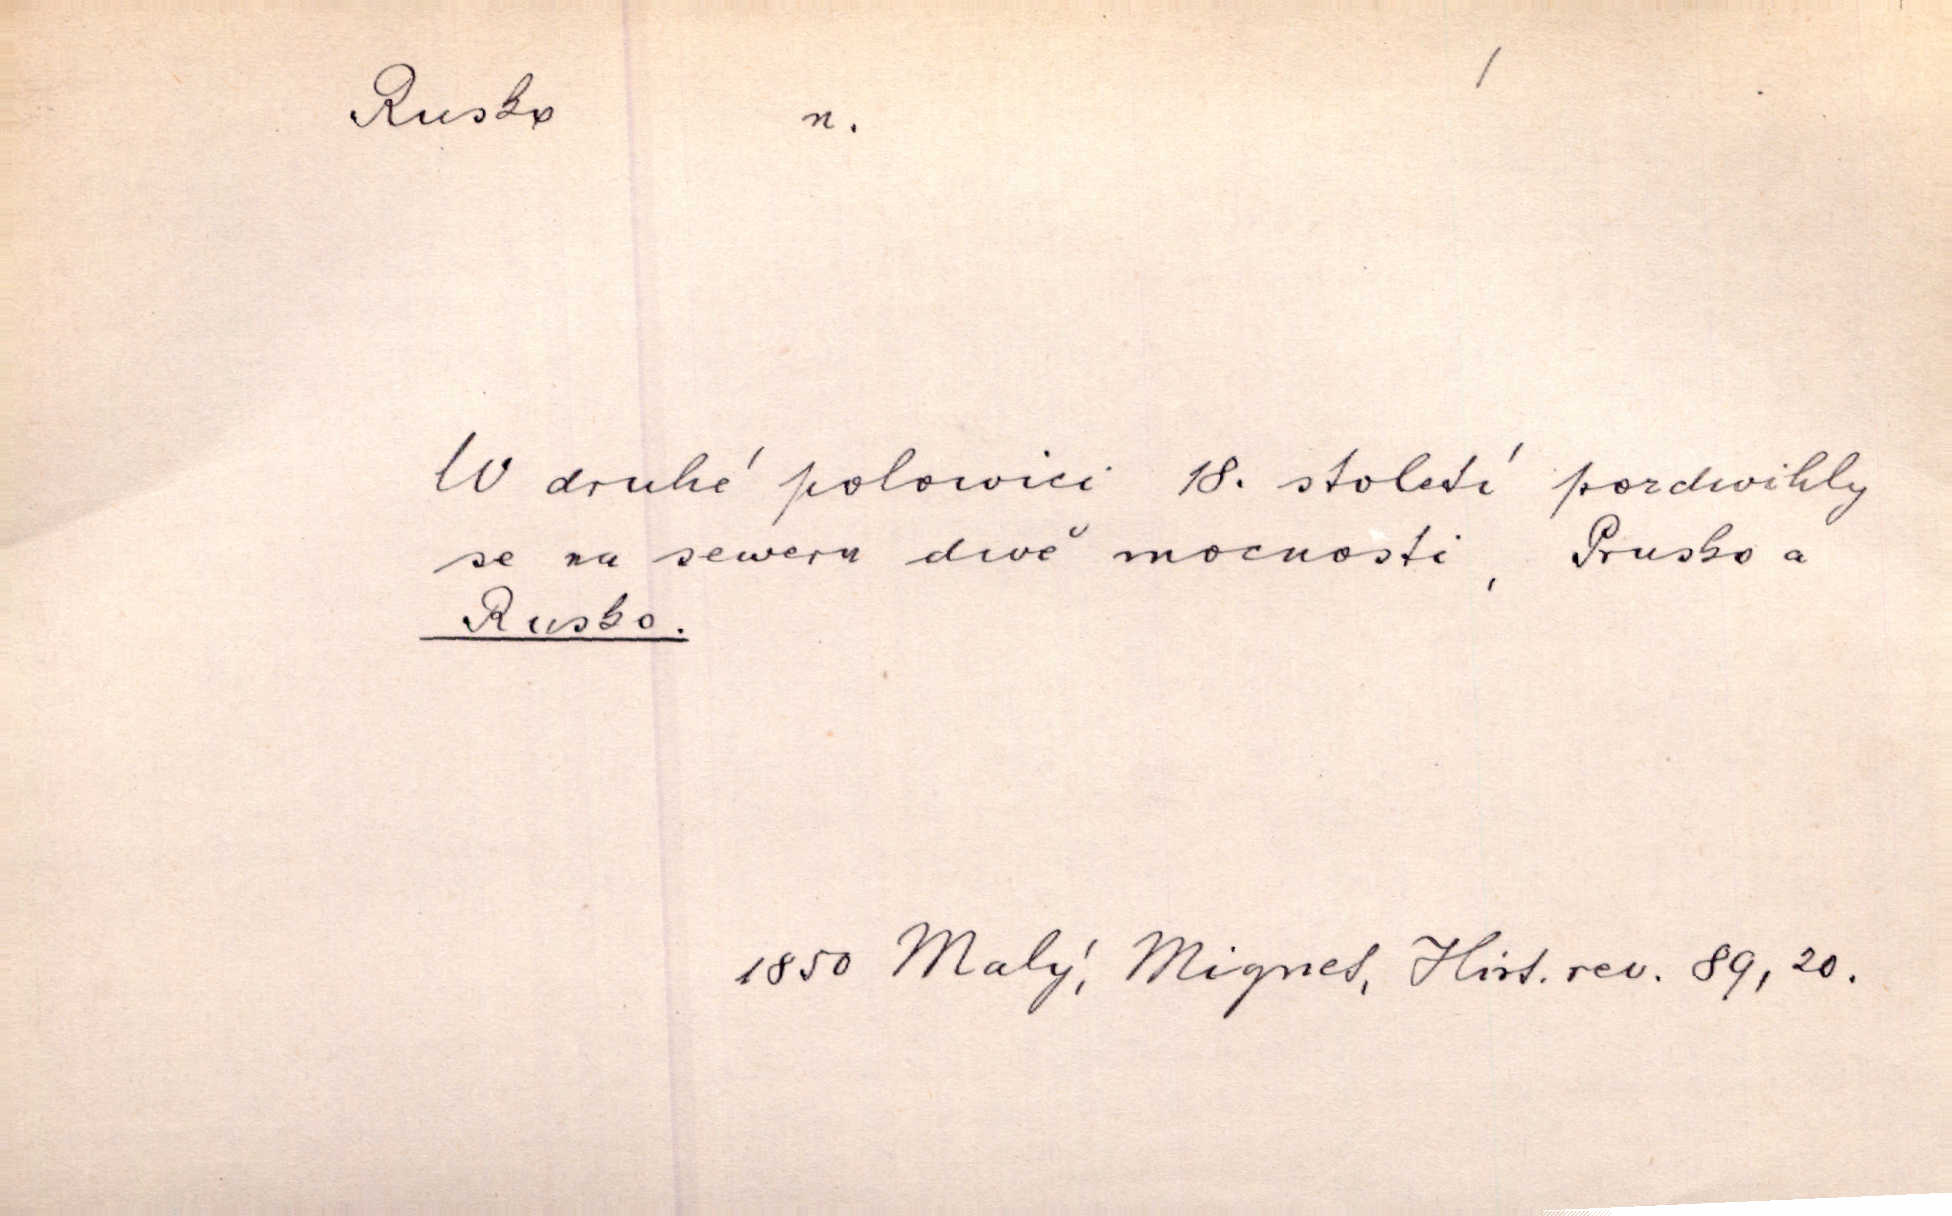 Rusko n. /
W druhé polowici 18. století pozdwihly
se na seweru dwě mocnosti, Prusko a
Rusko.
1850 Malý, Mignet, Hist. rev. 89, 20.